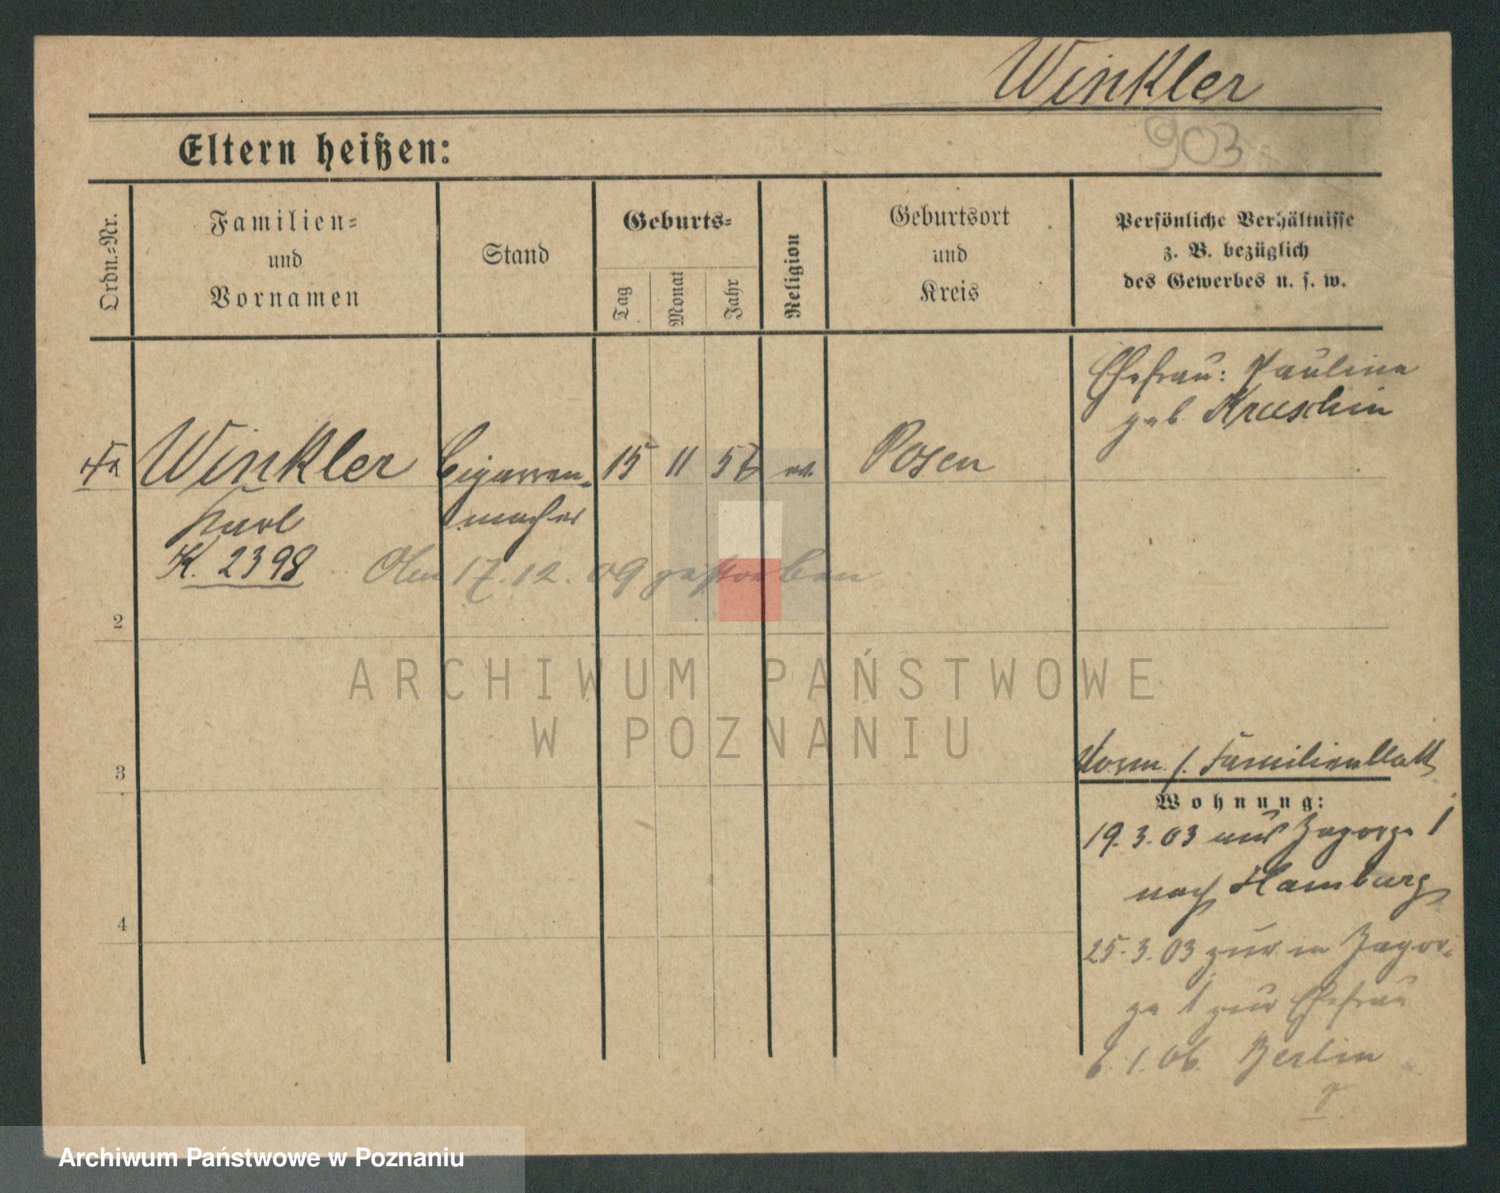 Winkler
903
Eltern heißen:
Ordn.-Nr.
Familien-
und
Vornamen
Stand
Geburts-
Tag
Monat
Jahr
Religion
Geburtsort
und
Kreis
Persönliche Verhältnisse
z. B. bezüglich
des Gewerbes u. s. w.
Ehefrau: Paulina
geb Kruschin
Winkler Cigarren- 15 11 56 ev. Posen
Karl macher
K. 2398
Am 17.12.09 gestorben
2
ARCHIWUM PAŃSTWOWE
W POZNANIU
3
Vorm. s. Familienblatt
Wohnung:
19.3.03 aus Zagorze 1
nach Hamburg
4
25.3.03 zur in Zagor-
ze 1 zur Ehefrau
6.1.06. Berlin
Archiwum Państwowe w Poznaniu